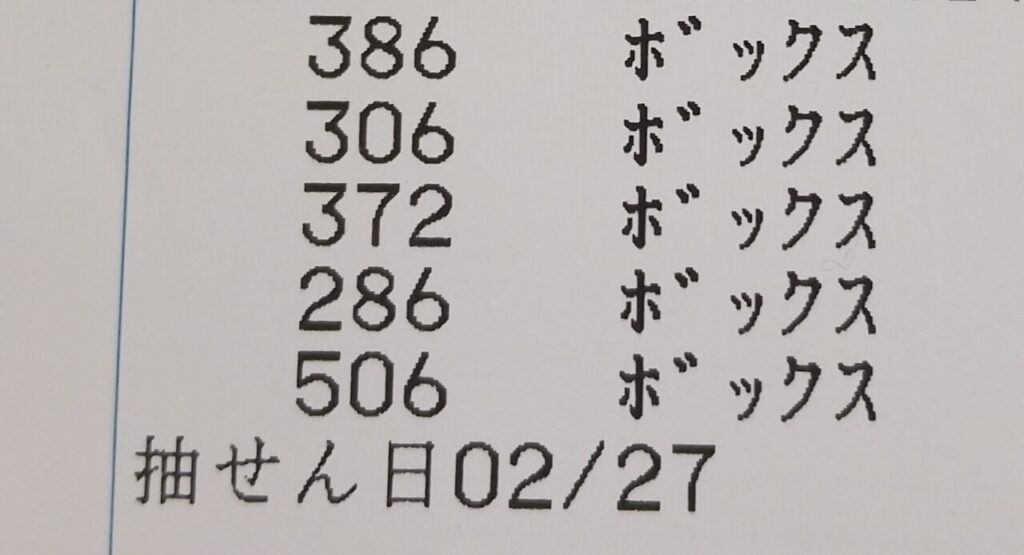 386 ボックス
306 ボックス
372 ボックス
286 ボックス
506 ボックス
抽せん日02/27